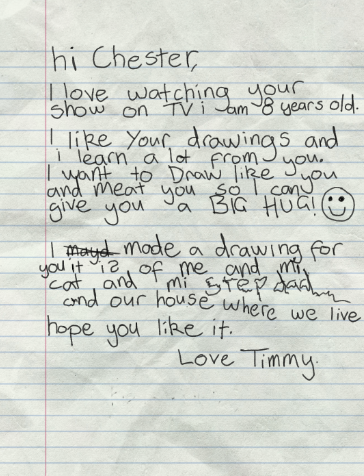 hi Chester,
I love watching your
show on TV i am 8 years old.
I like Your drawings and
i learn a lot from you.
I want to Draw like you
and meat you so I can
give you a BIG HUG!
I mayd made a drawing for
you it is of me and mi
cat and mi step dad
and our house where we live
hope you like it.
Love Timmy.